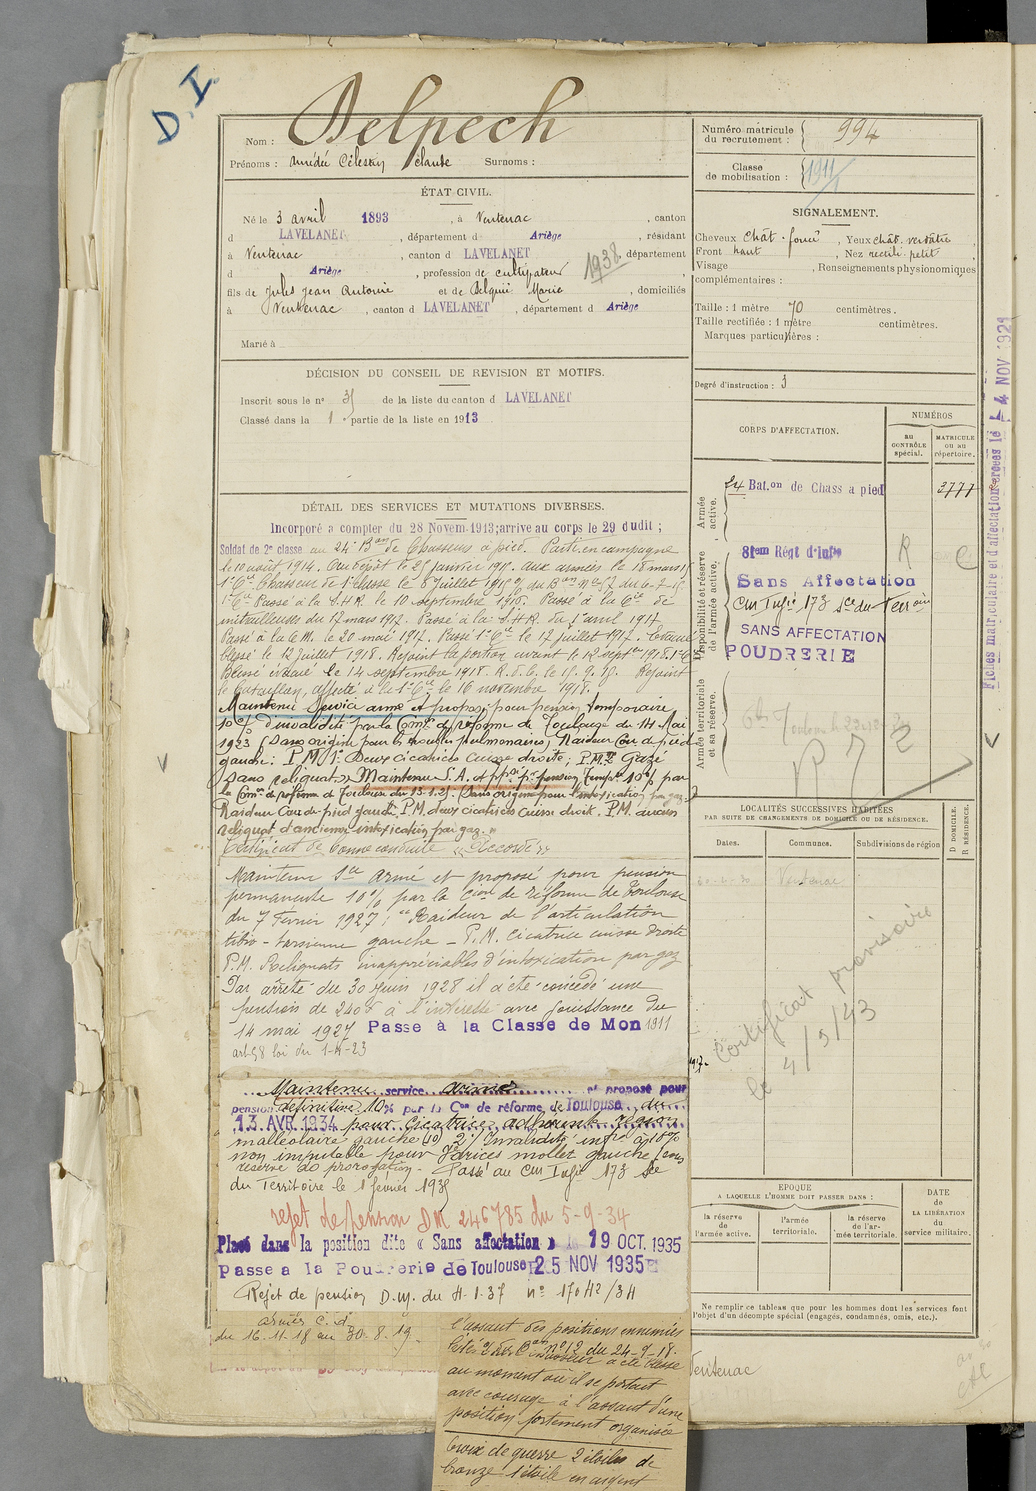 D.I.
Nom : Delpech
Prénoms : Amédée Célestin Claude Surnoms :
ÉTAT CIVIL.
Né le 3 avril 1893, à Ventenac, canton
d LAVELANET, département d Ariège, résidant
à Ventenac, canton d LAVELANET, département
d Ariège, profession de cultivateur
1938
fils de Jules Jean Antoine et de Delquié Marie, domiciliés
à Ventenac, canton d LAVELANET, département d Ariège
Marié à
DÉCISION DU CONSEIL DE REVISION ET MOTIFS.
Inscrit sous le n° 35 de la liste du canton d LAVELANET
Classé dans la 1 partie de la liste en 1913
DÉTAIL DES SERVICES ET MUTATIONS DIVERSES.
Incorporé a compter du 28 Novem. 1913; arrive au corps le 29 dudit ;
Soldat de 2e classe au 24e Bon de Chasseurs à pied. Parti en campagne
le 10 août 1914. Au dépôt le 25 janvier 1915. aux armées le 18 mars 15
1e Cie Chasseur de 1e classe le 8 juillet 1915
1e Cie Passé à la S.H.R. le 10 septembre 1916. Passé à la Cie de
mitrailleuses du 17 mars 1917. Passé à la S.H.R. du 5 avril 1917.
Passé à la C.M. le 20 mai 1917. Passé 1e Cie le 17 juillet 1917.
blessé le 12 juillet 1918. Rejoint la portion avant le 12 septbre 1918. 1e Cie
Blessé évacué le 14 septembre 1918. Rejoint
le bataillon, affecté à la 1e Cie le 16 novembre 1918.
Maintenu Service armé et proposé pour pension temporaire
10% d'invalidité par la Comon de réforme de Toulouse du 14 Mai
1923 (Sans origine pour les troubles pulmonaires, Raideur Cou de pied
gauche : P.M. 1° Deux cicatrices cuisse droite ; P.M. 2° Gazé
sans reliquats) Maintenu S.A. et ppé pr pension Tempre 10% par
la Comon de réforme de Toulouse du 13.1.25. Sans origine pour l'intoxication par gaz.
Raideur Cou-de-pied gauche, P.M. deux cicatrices cuisse droit. P.M. aucun
reliquat d'ancienne intoxication par gaz. »
Certificat de bonne conduite « Accordé »
Maintenu sce armé et proposé pour pension
permanente 10% par la Cion de réforme de Toulouse
du 7 Fevrier 1927 ; "Raideur de l'articulation
tibio-tarsienne gauche - P.M. Cicatrice cuisse droite
P.M. Reliquats inappréciables d'intoxication par gaz
Par arrêté du 30 juin 1928 il a été concédé une
pension de 240f à l'intéressé avec jouissance du
14 mai 1927 Passe à la Classe de Mon 1911
art 58 loi du 1-4-23
Maintenu service armé et proposé pour
pension définitive 10% par la Con de réforme de Toulouse du
13 AVR. 1934 pour cicatrice adhérente région
malléolaire gauche (10) 2°/ Invalidité infre à 10%
non imputable pour varices mollet gauche (sous
réserve de prorogation - Passé au Cm Infie 173 Sce
du Territoire le 1 février 1935
rejet de pension DM 246785 du 5-9-34
Placé dans la position dite « Sans affectation » le 19 OCT. 1935
Passe a la Poudrerie de Toulouse 25 NOV 1935
Rejet de pension D.M. du 4-1-37 n° 17042/34
armées C.d.
du 16.11.18 au 30.8.19.
l'assaut des positions ennemies
Cité n°12 du 24-9-18.
a été blessé
au moment où il se portait
avec courage à l'assaut d'une
position fortement organisée
Croix de guerre 2 étoiles de
bronze 1 étoile en argent
Numéro matricule
du recrutement : 994
Classe
de mobilisation : 1911
SIGNALEMENT.
Cheveux chât. foncé, Yeux chât. verdâtre,
Front haut, Nez rectil. petit,
Visage , Renseignements physionomiques
complémentaires :
Taille : 1 mètre 70 centimètres.
Taille rectifiée : 1 mètre centimètres.
Marques particulières :
Degré d'instruction : 3
CORPS D'AFFECTATION.
NUMÉROS
AU CONTRÔLE spécial.
MATRICULE ou au répertoire.
Armée active.
24 Bat.on de Chass a pied 3777
Disponibilité et réserve de l'armée active.
81em Régt d'Infie R
Sans Affectation
Cm Infie 173 Sce du Territoire
SANS AFFECTATION
POUDRERIE
Armée territoriale et sa réserve.
LOCALITÉS SUCCESSIVES HABITÉES
PAR SUITE DE CHANGEMENTS DE DOMICILE OU DE RÉSIDENCE.
Dates.
Communes.
Subdivisions de région
D DOMICILE.
R RÉSIDENCE.
Ventenac
Certificat provisoire
le 4/3/43
EPOQUE
A LAQUELLE L'HOMME DOIT PASSER DANS :
la réserve de l'armée active.
l'armée territoriale.
la réserve de l'armée territoriale.
DATE de LA LIBÉRATION du service militaire.
Ne remplir ce tableau que pour les hommes dont les services font
l'objet d'un décompte spécial (engagés, condamnés, omis, etc.).
Ventenac
Fiches matriculaire et d'affectation créées le 4 NOV 1921